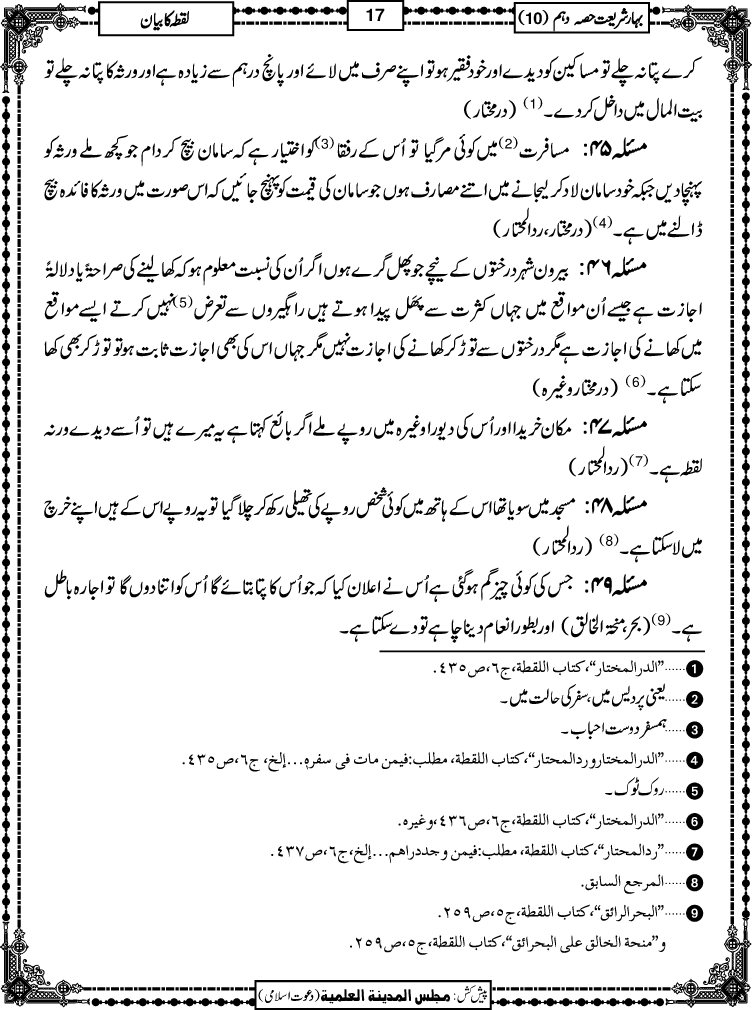 بہار شریعت حصہ دہم (10)
17
لقطہ کا بیان
کرے پتا نہ چلے تو مساکین کو دیدے اور خود فقیر ہو تو اپنے صرف میں لائے اور پانچ درہم سے زیادہ ہے اور ورثہ کا پتا نہ چلے تو
بیت المال میں داخل کر دے۔(1) (درمختار)
مسئلہ ۴۵: مسافرت(2) میں کوئی مرگیا تو اُس کے رفقا(3) کو اختیار ہے کہ سامان بیچ کر دام جو کچھ ملے ورثہ کو
پہنچا دیں جبکہ خود سامان لاد کر لیجانے میں اتنے مصارف ہوں جو سامان کی قیمت کو پہنچ جائیں کہ اس صورت میں ورثہ کا فائدہ بیچ
ڈالنے میں ہے۔(4) (درمختار، ردالمحتار)
مسئلہ ۴۶: بیرون شہر درختوں کے نیچے جو پھل گرے ہوں اگر اُن کی نسبت معلوم ہو کہ کھا لینے کی صراحۃً یا دلالۃً
اجازت ہے جیسے اُن مواقع میں جہاں کثرت سے پھل پیدا ہوتے ہیں راہگیروں سے تعرض(5) نہیں کرتے ایسے مواقع
میں کھانے کی اجازت ہے مگر درختوں سے توڑ کر کھانے کی اجازت نہیں مگر جہاں اس کی بھی اجازت ثابت ہو تو توڑ کر بھی کھا
سکتا ہے۔(6) (درمختار وغیرہ)
مسئلہ ۴۷: مکان خریدا اور اُس کی دیوار وغیرہ میں روپے ملے اگر بائع کہتا ہے یہ میرے ہیں تو اُسے دیدے ورنہ
لقطہ ہے۔(7) (ردالمحتار)
مسئلہ ۴۸: مسجد میں سویا تھا اس کے ہاتھ میں کوئی شخص روپے کی تھیلی رکھ کر چلا گیا تو یہ روپے اس کے ہیں اپنے خرچ
میں لاسکتا ہے۔(8) (ردالمحتار)
مسئلہ ۴۹: جس کی کوئی چیز گم ہوگئی ہے اُس نے اعلان کیا کہ جو اُس کا پتا بتائے گا اُس کو اتنا دوں گا تو اجارہ باطل
ہے۔(9) (بحر، منحۃ الخالق) اور بطور انعام دینا چاہے تو دے سکتا ہے۔
1 ......”الدرالمختار“، کتاب اللقطة، ج٦، ص٤٣٥.
2 ......یعنی پردیس میں، سفر کی حالت میں۔
3 ......ہمسفر دوست احباب۔
4 ......”الدرالمختار وردالمحتار“، کتاب اللقطة، مطلب: فیمن مات فی سفرہ...إلخ، ج٦، ص٤٣٥.
5 ......روک ٹوک۔
6 ......”الدرالمختار“، کتاب اللقطة، ج٦، ص٤٣٦، وغیرہ.
7 ......”ردالمحتار“، کتاب اللقطة، مطلب: فیمن وجد دراهم...إلخ، ج٦، ص٤٣٧.
8 ......المرجع السابق.
9 ......”البحرالرائق“، کتاب اللقطة، ج٥، ص٢٥٩.
و”منحة الخالق علی البحرائق“، کتاب اللقطة، ج٥، ص٢٥٩.
پیش کش: مجلس المدینة العلمیة (دعوت اسلامی)